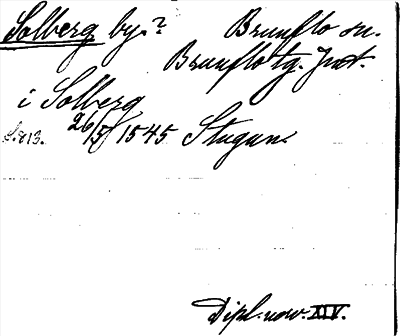 Solberg by.? Brunflo sn.
Brunflo tg. Jmt.
i Solberg
s. 813. 26/5 1545. Stugan.
Dipl. norv. XIV.